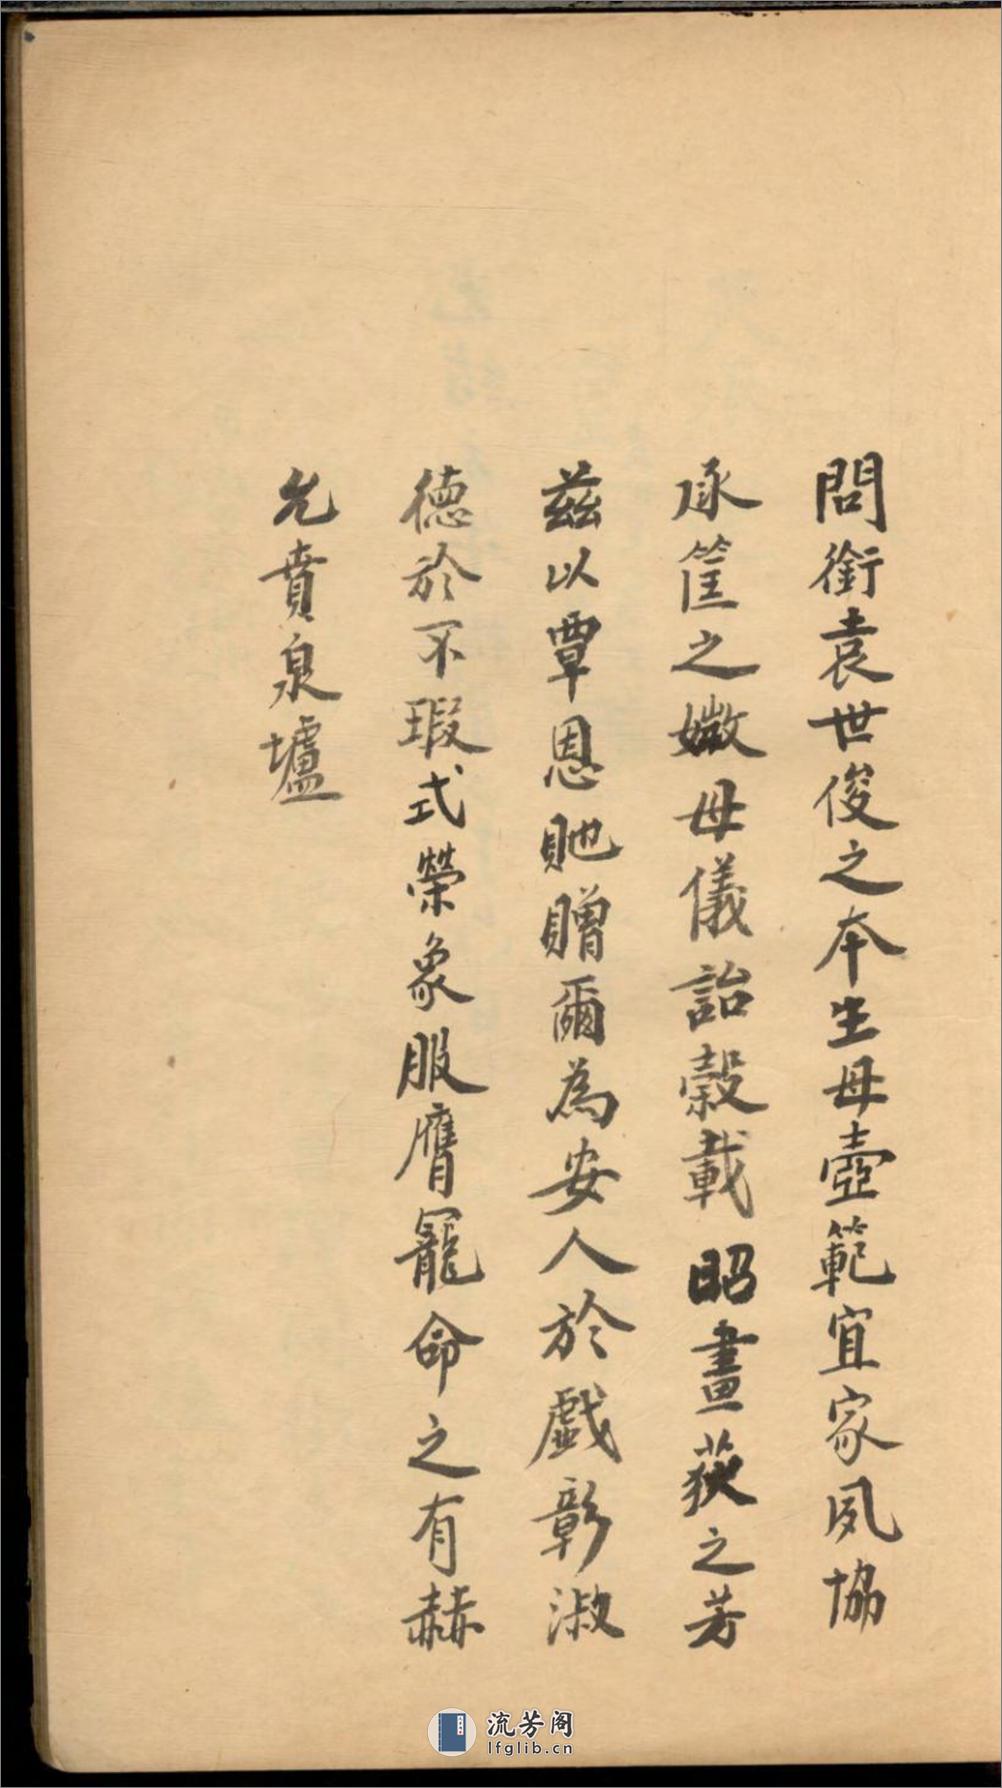 問銜袁世俊之本生母壼範宜家夙協
承筐之媺母儀詒穀載昭畫荻之芳
兹以覃恩貤贈爾為安人於戲彰淑
德於不瑕式榮象服膺寵命之有赫
允賁泉壚
流芳阁
lfglib.cn